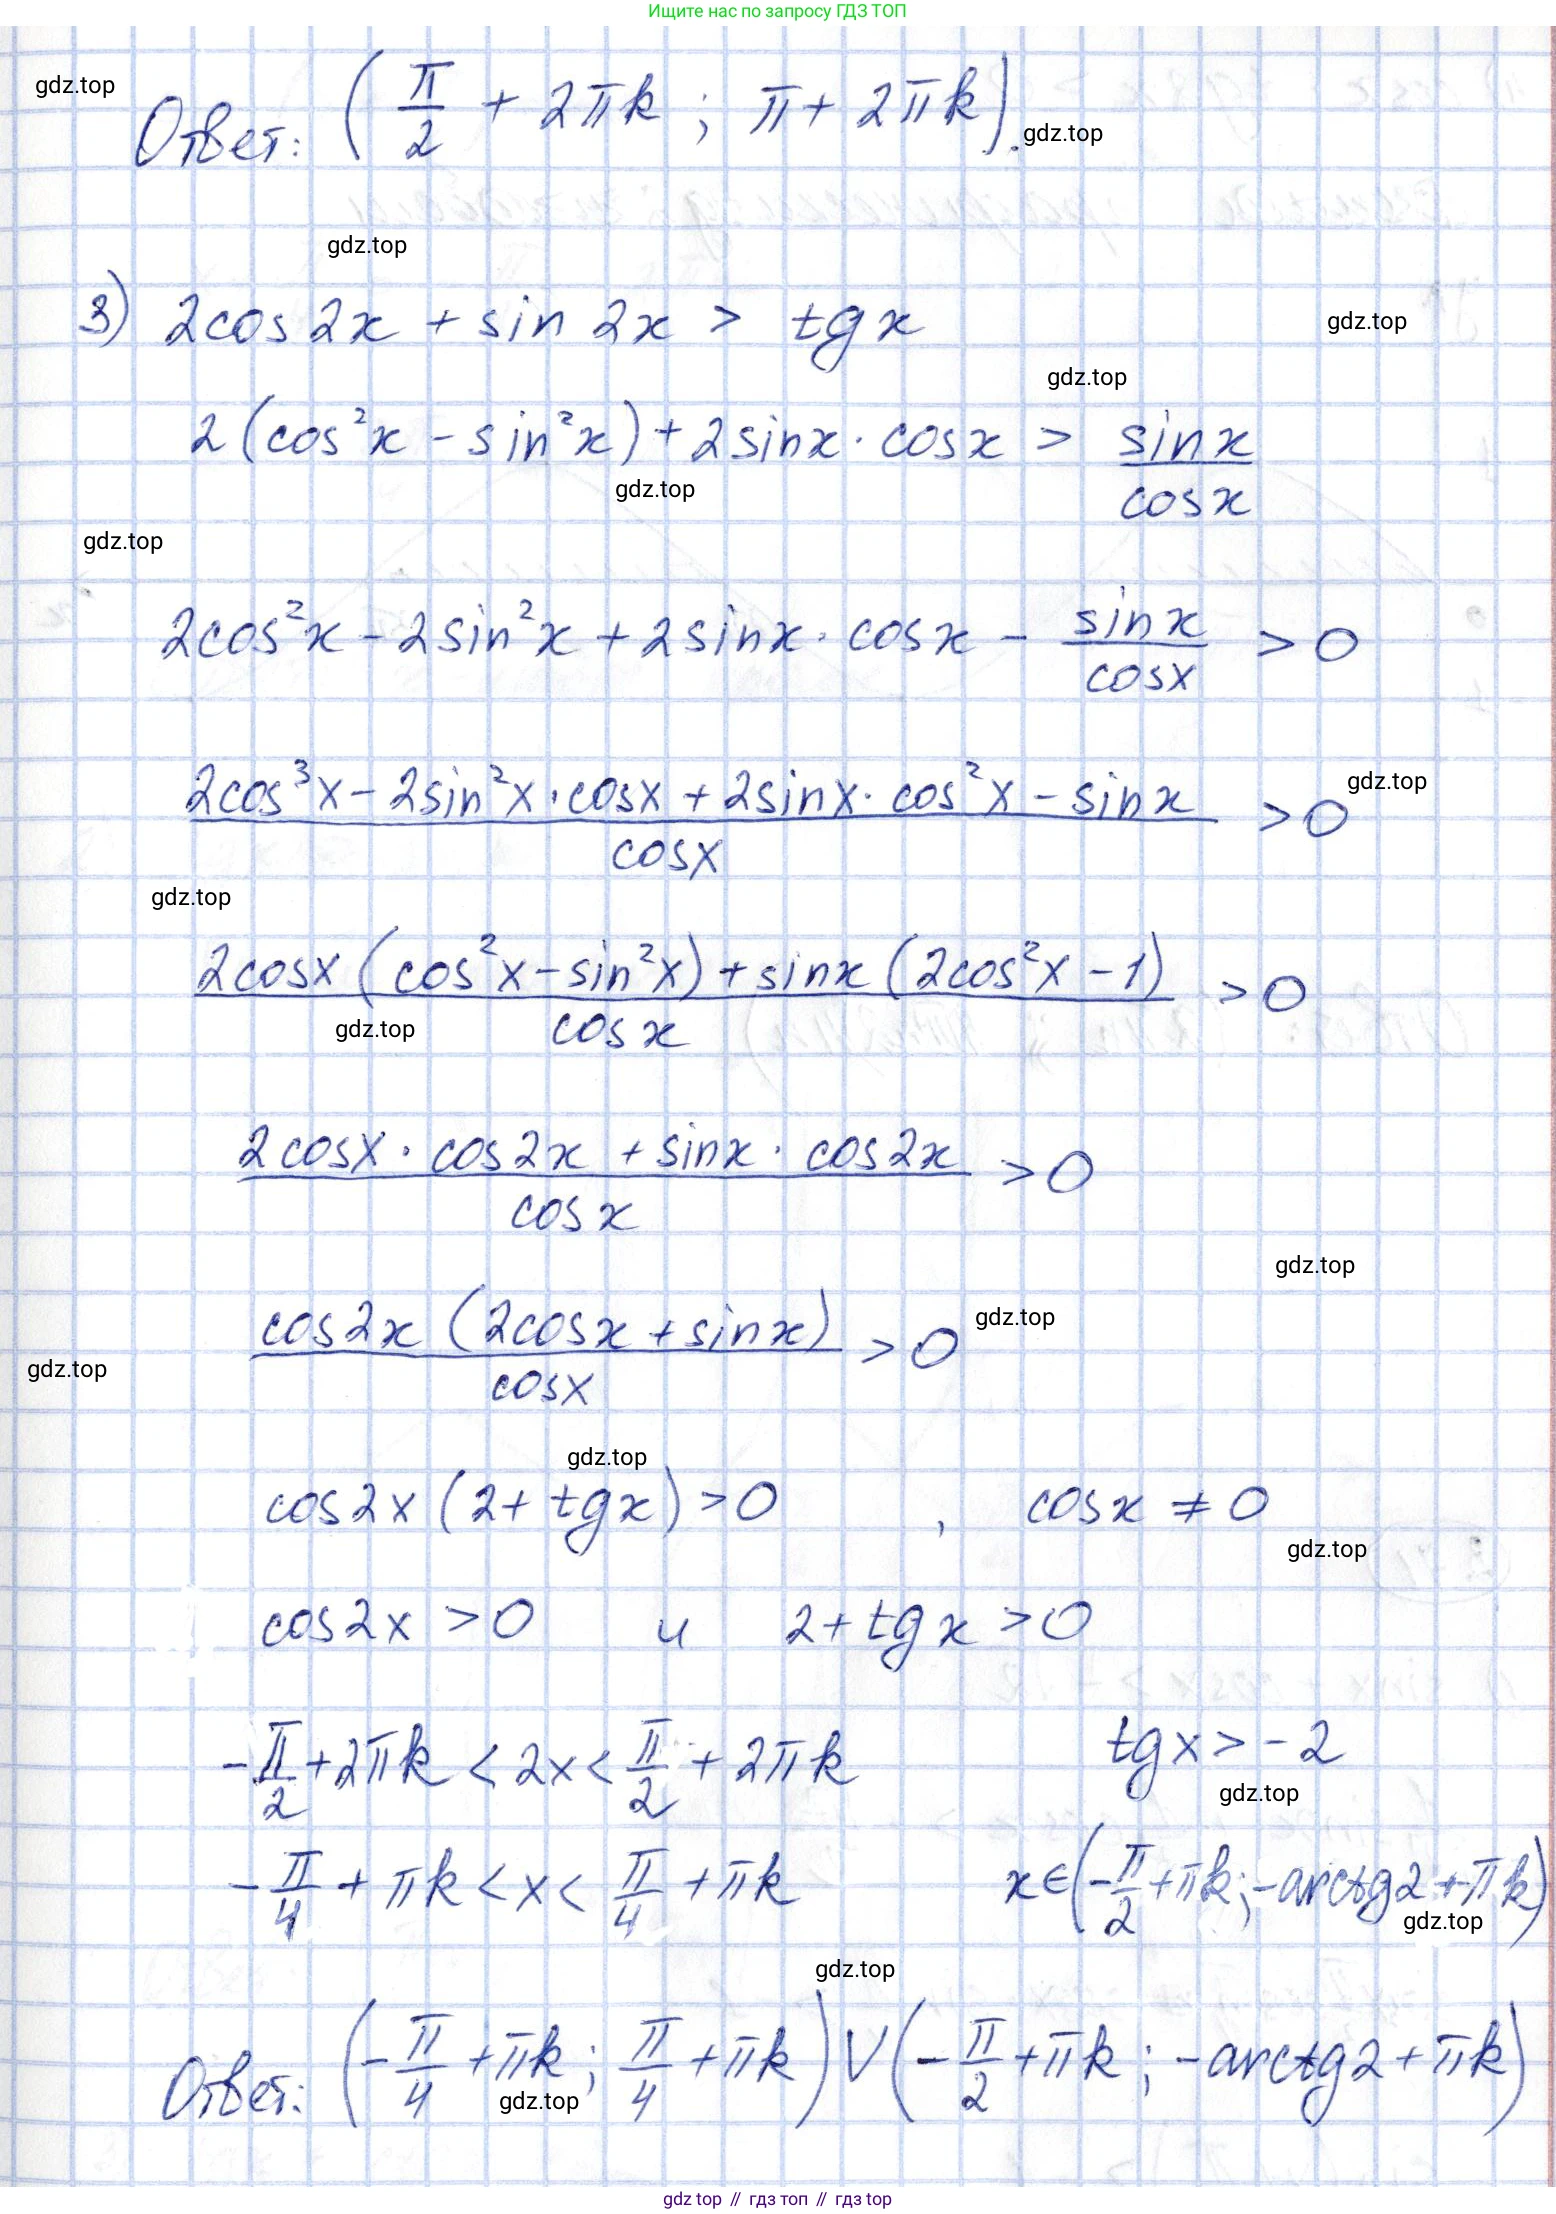 Ищите нас по запросу ГДЗ ТОП
gdz.top
Ответ: (π/2 + 2πk ; π + 2πk).
gdz.top
gdz.top
3) 2cos 2x + sin 2x > tg x
gdz.top
gdz.top
2(cos²x - sin²x) + 2sinx · cosx > sinx/cosx
gdz.top
gdz.top
2cos²x - 2sin²x + 2sinx · cosx - sinx/cosx > 0
(2cos³x - 2sin²x · cosx + 2sinx · cos²x - sinx)/cosx > 0
gdz.top
gdz.top
(2cosx(cos²x - sin²x) + sinx(2cos²x - 1))/cosx > 0
gdz.top
(2cosx · cos2x + sinx · cos2x)/cosx > 0
gdz.top
(cos2x(2cosx + sinx))/cosx > 0
gdz.top
gdz.top
gdz.top
cos2x(2 + tgx) > 0 , cosx ≠ 0
gdz.top
cos2x > 0 и 2 + tgx > 0
-π/2 + 2πk < 2x < π/2 + 2πk tgx > -2
gdz.top
-π/4 + πk < x < π/4 + πk x ∈ (-π/2 + πk; -arctg2 + πk)
gdz.top
gdz.top
Ответ: (-π/4 + πk; π/4 + πk) ∪ (-π/2 + πk; -arctg2 + πk)
gdz.top
gdz top // гдз топ // гдз top